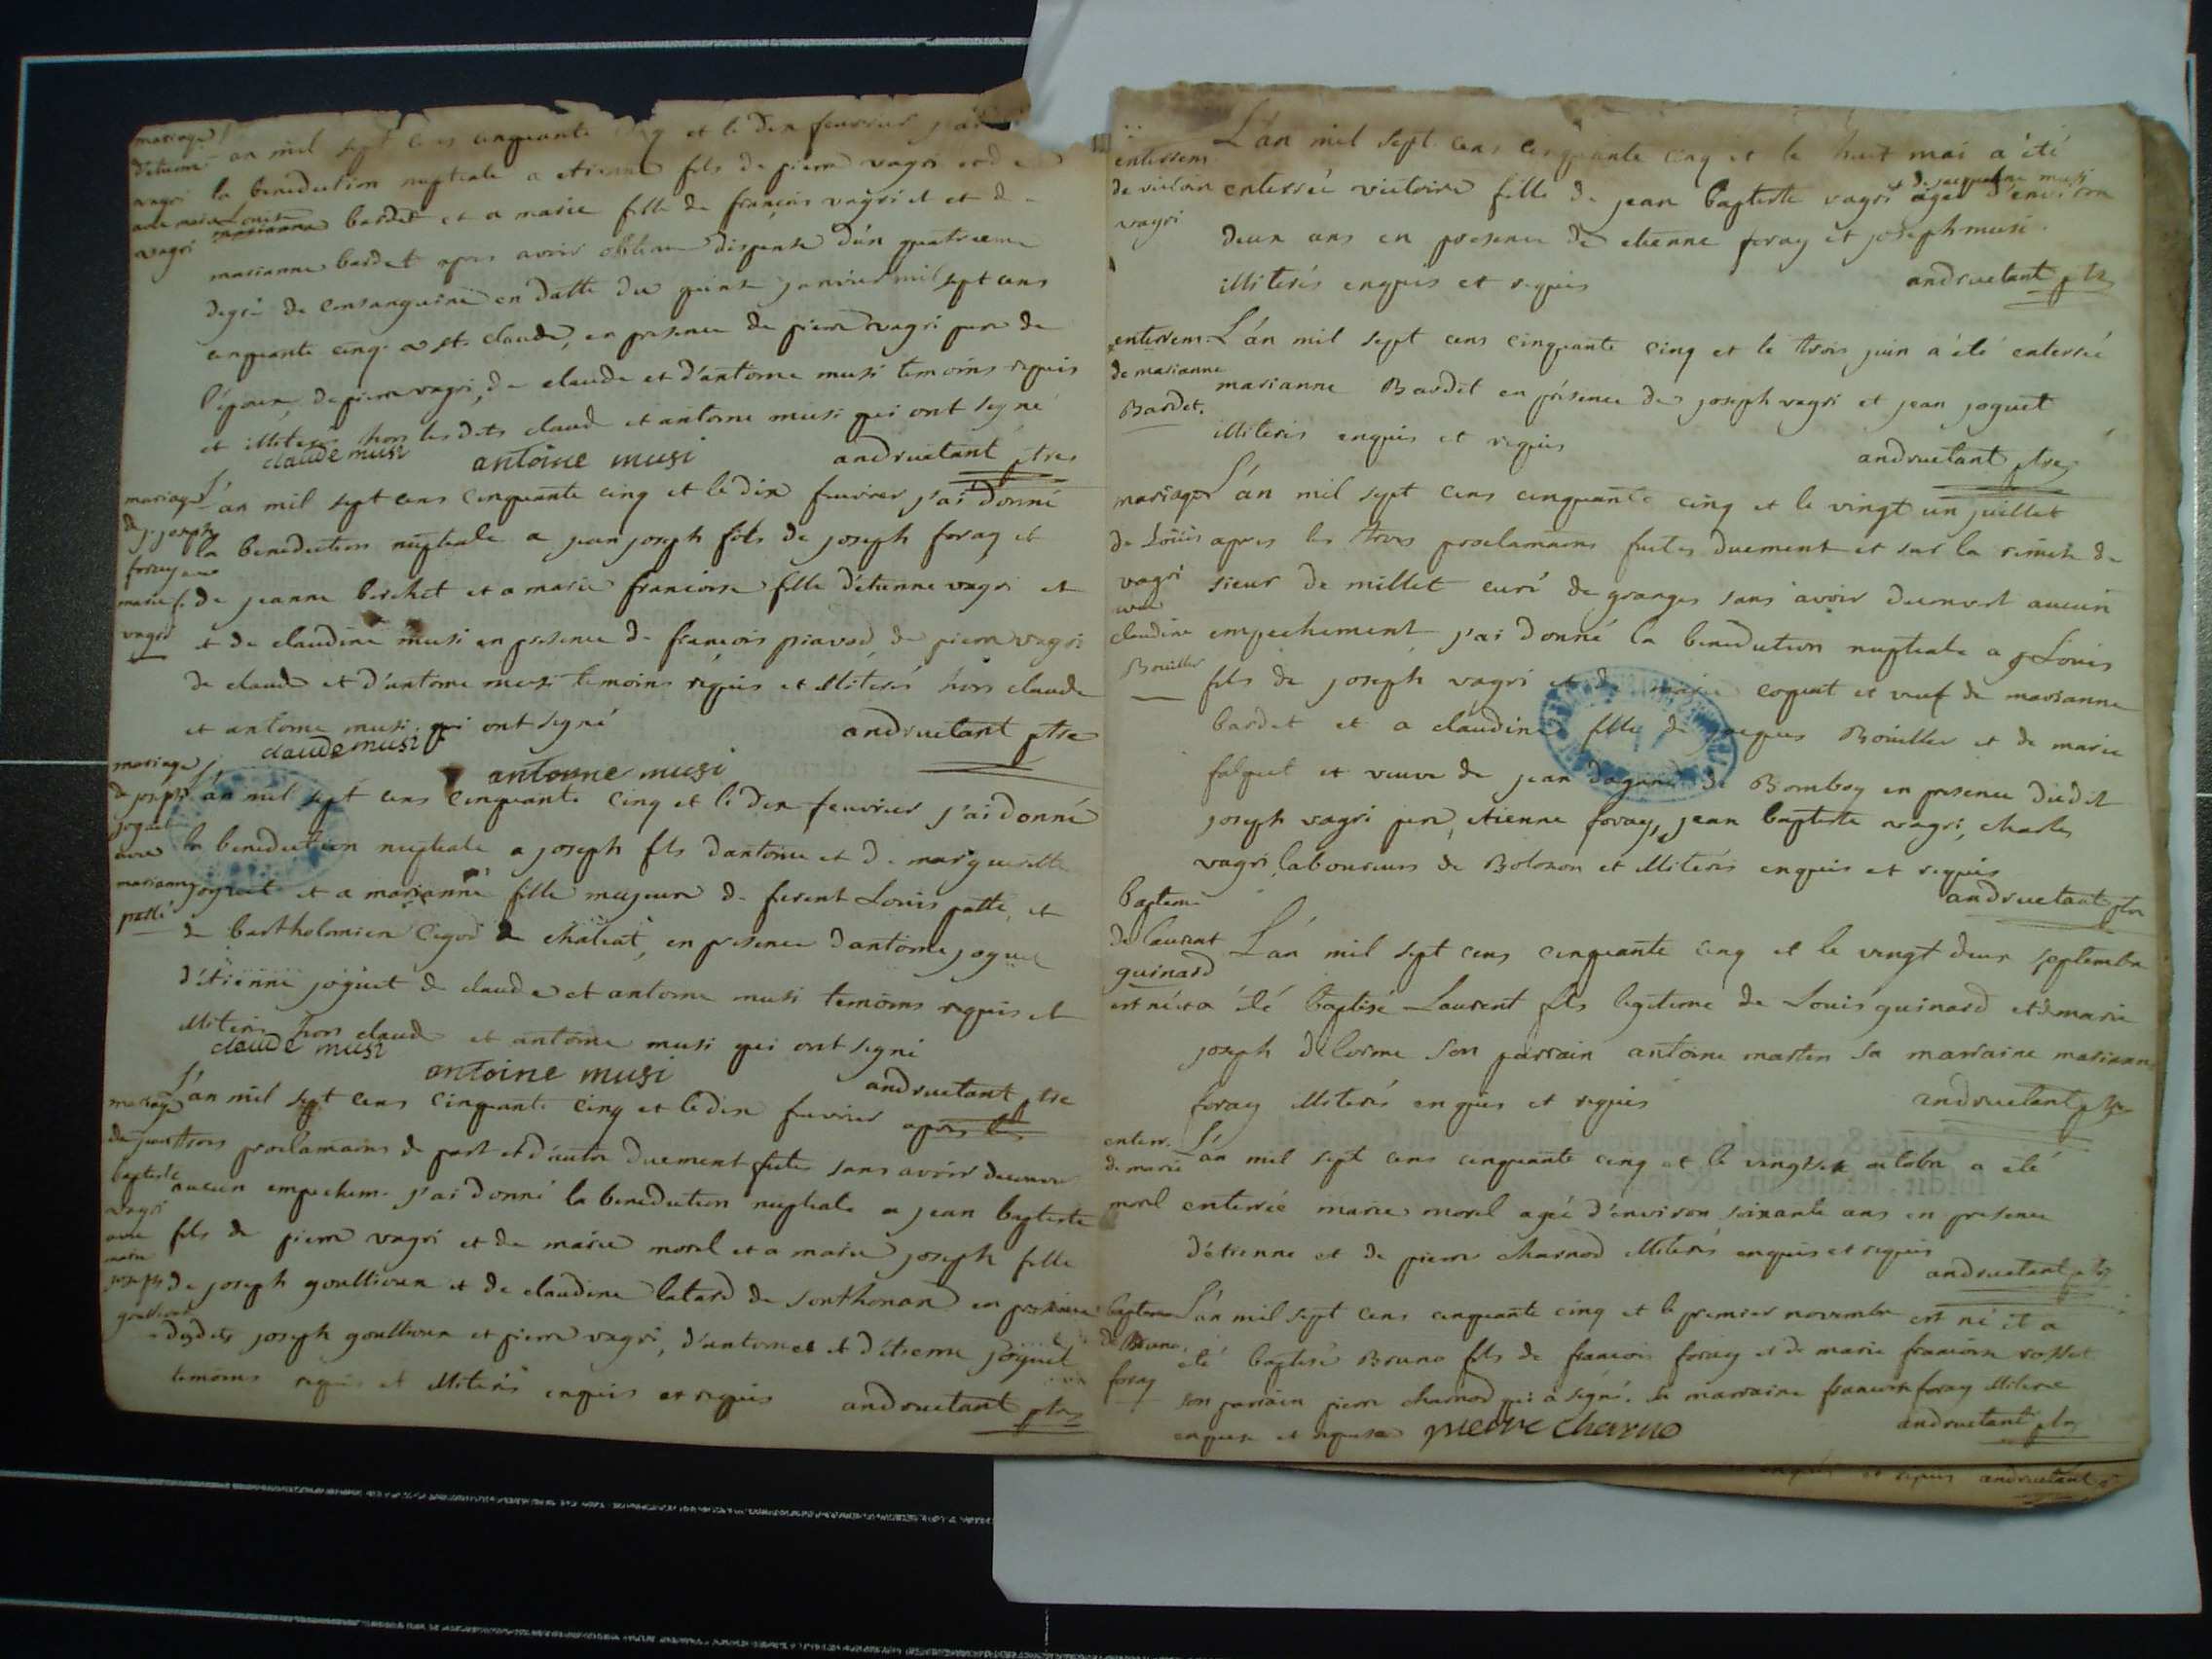 mariage
d'etienne
vagri
avec marie
vagri
an mil sept cens cinquante cinq et le dix feuvrier j'ai
la benediction nuptiale a etienne fils de pierre vagri et de
Louise marianne bardet et a marie fille de françois vagri et et de
marianne bardet apres avoir obtenu dispense d'un quatrieme
degré de consanguine en datte du quinse janvier mil sept cens
cinquante cinq a st. claude, en presence de pierre vagri pere de
l'epoux, de pierre vagri, de claude et d'antoine musi temoins requis
et illiterés hors lesdits claude et antoine musi qui ont signé
claude musi antoine musi andruetant ptre
mariage
de j. joseph
foray avec
marie f.
vagri
L'an mil sept cens cinquante cinq et le dix feuvrier j'ai donné
la benediction nuptiale a jean joseph fils de joseph foray et
de jeanne berchet et a marie francoise fille d'etienne vagri et
et de claudine musi en presence de françois piavod, de pierre vagri
de claude et d'antoine musi temoins requis et illiterés hors claude
et antoine musi qui ont signé andruetant ptre
claude musi
antoinne musi
mariage
de joseph
joguet
avec
marianne
patté
L'an mil sept cens cinquante cinq et le dix feuvrier j'ai donné
la benediction nuptiale a joseph fils d'antoine et de margueritte
joguet et a marianne fille majeure de Louis patté, et
de bartholomien de chatiat, en presence d'antoine joguet
d'étienne joguet de claude et antoine musi temoins requis et
illiteris hors claude et antoine musi qui ont signé
claude musi
antoine musi
andruetant ptre
mariage
de jean
baptiste
vagri
avec
marie
joseph
L'an mil sept cens cinquante cinq et le dix feuvrier apres les
trois proclamaons de part et d'autre duement faites sans avoir decouvert
aucun empechem. j'ai donné la benediction nuptiale a jean baptiste
fils de pierre vagri et de marie morel et a marie joseph fille
de joseph goullioux et de claudine latard de sonthonan en presence
desdits joseph goullioux et pierre vagri, d'antoine et d'étienne joguet
temoins requis et illiterés enquis et requis andruetant ptre
enterrem
de victoire
vagri
L'an mil sept cens cinquante cinq et le huit mai a été
enterrée victoire fille de jean baptiste vagri et de jacqueline musi agée d'environ
deux ans en presence de etienne foray et joseph musi
illiterés enquis et requis andruetant ptre
enterrem.
de marianne
Bardet.
L'an mil sept cens cinquante cinq et le trois juin a été enterrée
marianne Bardet en présence de joseph vagri et jean joguet
illiterés enquis et requis
andruetant ptre
mariage
de Loüis
vagri
avec
claudine
Bouiller
L'an mil sept cens cinquante cinq et le vingt un juillet
apres les trois proclamaons faites duement et sur la remise de
sieur de millet curé de granges sans avoir decouvert aucun
empechement j'ai donné la benediction nuptiale a Louis
fils de joseph vagri et de marie coquat et veuf de marianne
bardet et a claudine fille de jacques Bouiller et de marie
falquet et veuve de jean de Bombog en presence dudit
joseph vagri pere, etienne foray, jean baptiste vagri, charles
vagri, laboureurs de Bolozon et illiterés enquis et requis
andruetant ptre
baptem
de laurent
guinard
L'an mil sept cens cinquante cinq et le vingt deux septembre
est né et a été baptisé Laurent fils legitime de Louis guinard et de marie
joseph delorme son parrain antoine martin sa marraine marianne
foray illiterés enquis et requis andruetant ptre
enterr.
de marie
morel
L'an mil sept cens cinquante cinq et le vingt six octobre a été
enterrée marie morel agée d'environ soixante ans en presence
d'étienne et de pierre charnod illiterés enquis et requis
andruetant ptre
baptem
de Bruno
foray
L'an mil sept cens cinquante cinq et le premier novembre est né et a
été baptisé Bruno fils de francois foray et de marie francoise rosset
son parrain pierre charnod qui a signé. sa marraine francoise foray illiterée
enquise et requise pierre charno andruetant ptre
enquis et requis andruetant